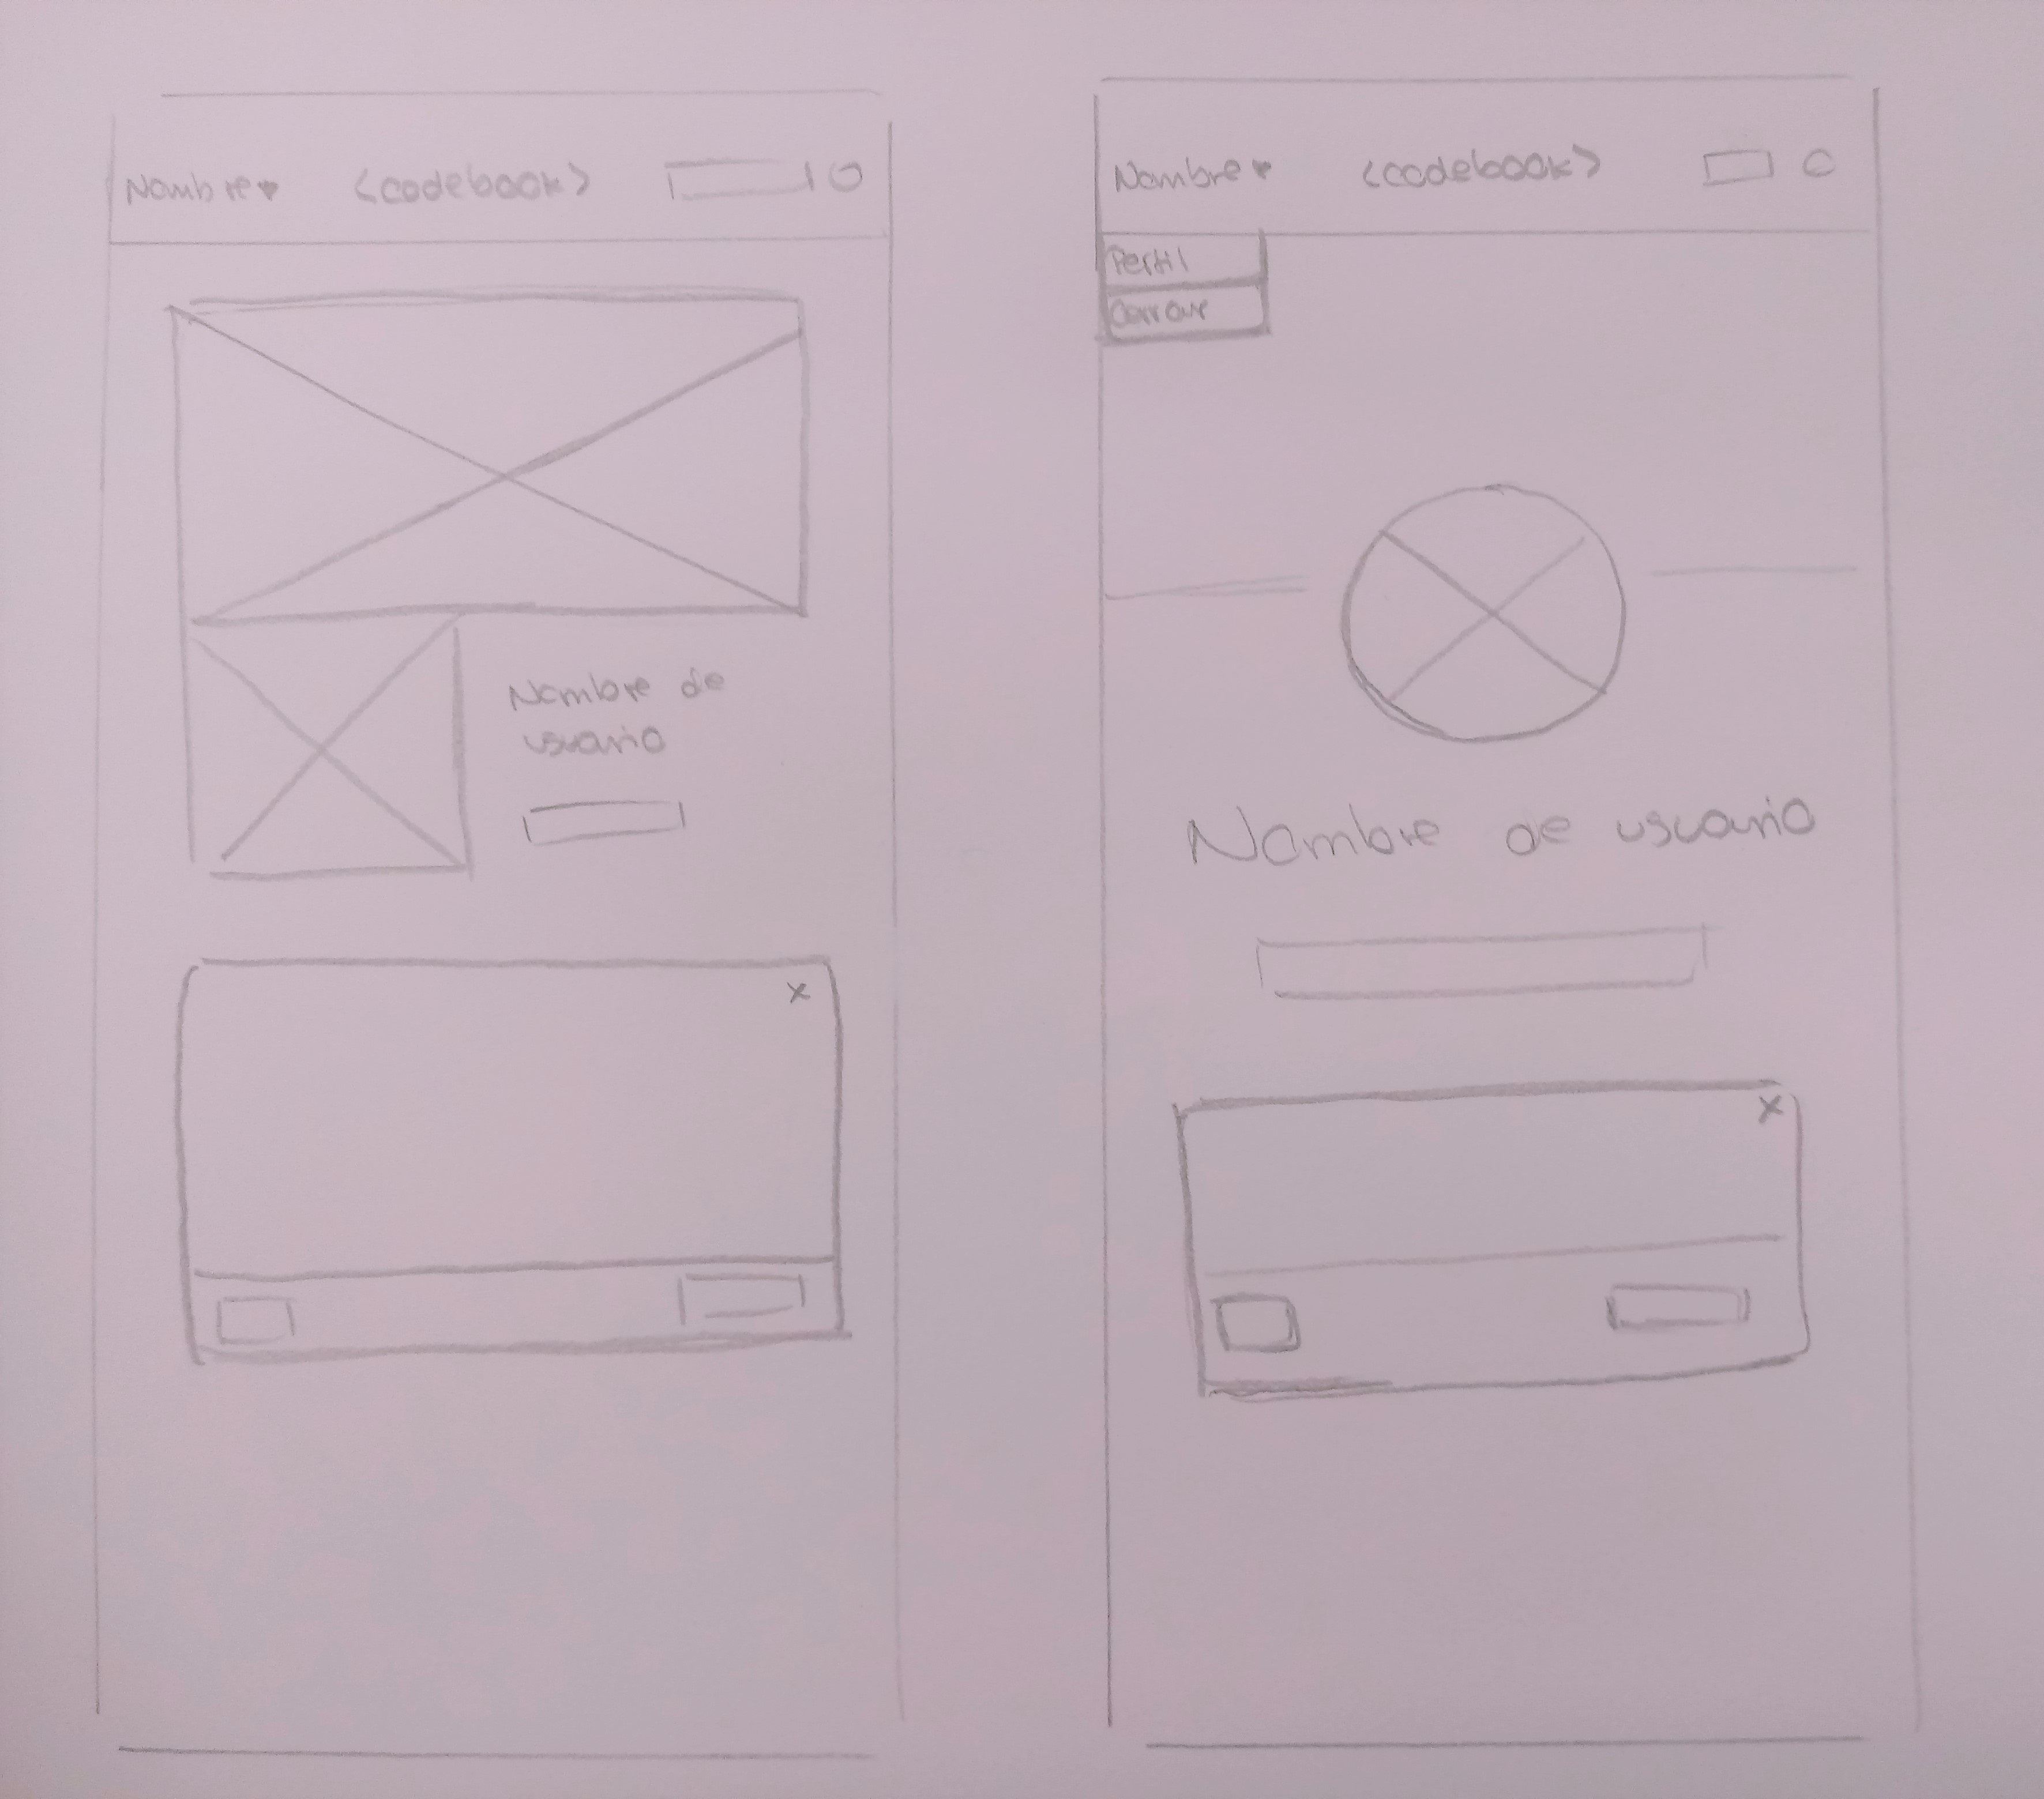 Nombre▾ <codebook>
Nombre de
usuario
x
Nombre▾ <codebook>
Perfil
Cerrar
Nombre de usuario
x